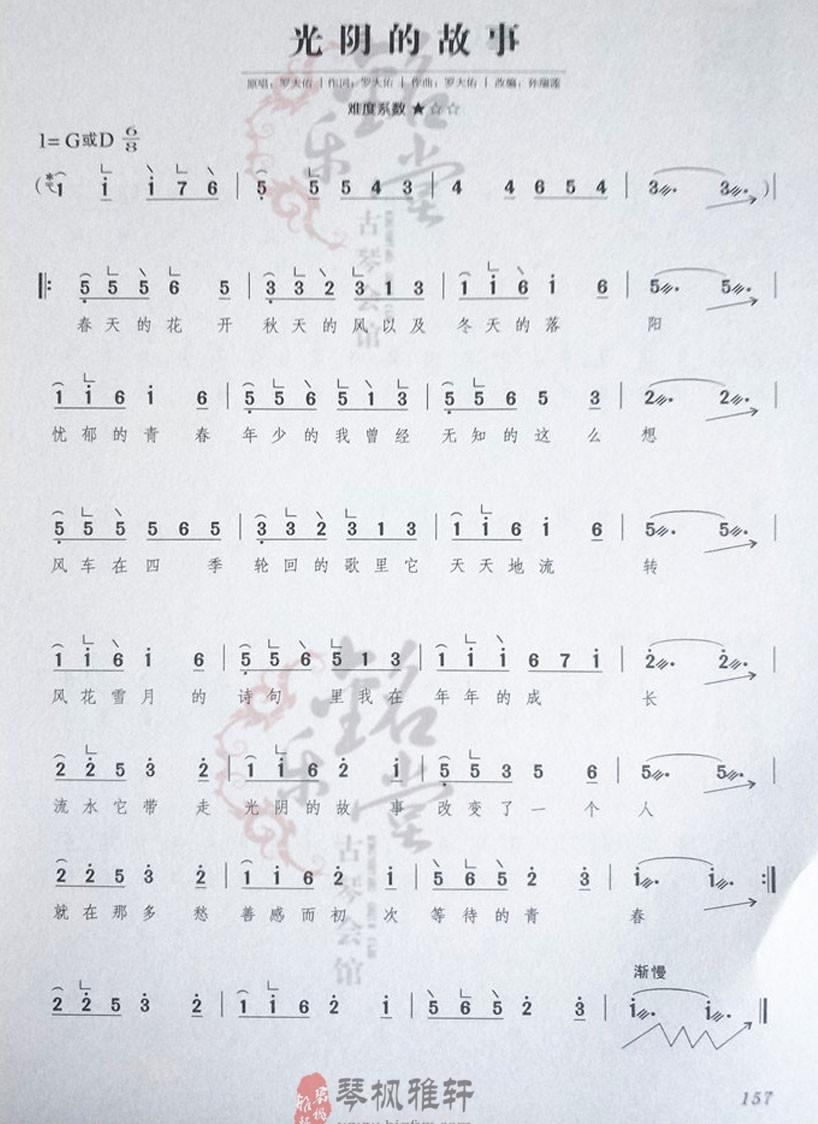 光阴的故事
原唱：罗大佑 | 作词：罗大佑 | 作曲：罗大佑 | 改编：孙瑞莲
难度系数 ★☆☆
1=G或D 6/8
(1 i i 7 6 | 5 5 5 4 3 | 4 4 6 5 4 | 3 3 )|
‖: 5 5 5 6 5 | 3 3 2 3 1 3 | 1 i 6 i 6 | 5 5 |
春天的花 开 秋天的风以及 冬天的落 阳
1 i 6 i 6 | 5 5 6 5 1 3 | 5 5 6 5 3 | 2 2 |
忧郁的青 春 年少的我曾经 无知的这么 想
5 5 5 5 6 5 | 3 3 2 3 1 3 | 1 i 6 i 6 | 5 5 |
风车在四 季 轮回的歌里它 天天地流 转
1 i 6 i 6 | 5 5 6 5 1 3 | 1 i i 6 7 i | 2 2 |
风花雪月 的 诗句 里我在 年年的成 长
2 2 5 3 2 | 1 i 6 2 i | 5 5 3 5 6 | 5 5 |
流水它带 走 光阴的故 事 改变了一个 人
2 2 5 3 2 | 1 i 6 2 i | 5 6 5 2 3 | i i :‖
就在那多 愁 善感而初 次 等待的青 春
渐慢
2 2 5 3 2 | 1 i 6 2 i | 5 6 5 2 3 | i i ‖
琴枫雅轩
157